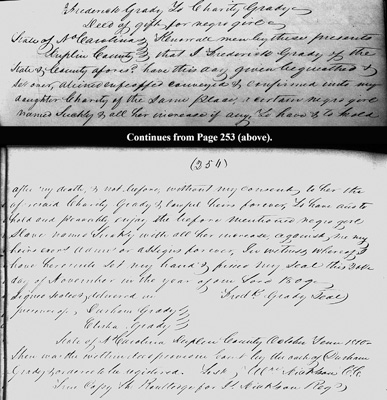 Frederick Grady To Charity Grady
Deed of gift for negro girl
State of No Carolina Know all men by these presents
Duplin County that I Frederick Grady of the
State & County afores have this day given bequeathed &
over, aliened enfeoffed conveyed & confirmed unto my
daughter Charity of the Same place, a certain negro girl
named Suckly & all her increase if any, To have & to hold
Continues from Page 253 (above).
(254)
after my death, & not before, without my consent, to her the
said Charity Grady & lawful heirs forever, To have and to
hold and peaceably enjoy the before mentioned negro girl
Slave named Suckly with all her increase against me my
heirs exrs admrs or assigns forever, In witness whereof I
have hereunto Set my hand & seal this
day of November in the year of our Lord 1809
Signed sealed & delivered in Fredk Grady Seal
presence of, Durham Grady
Elisha Grady
State of No Carolina Duplin County October Term 1810
Then was the within deed proven in Court by the oath of Durham
Grady & ordered to be registered. Test, Wm Dickson C.C.
True Copy Routledge for Dickson Regr